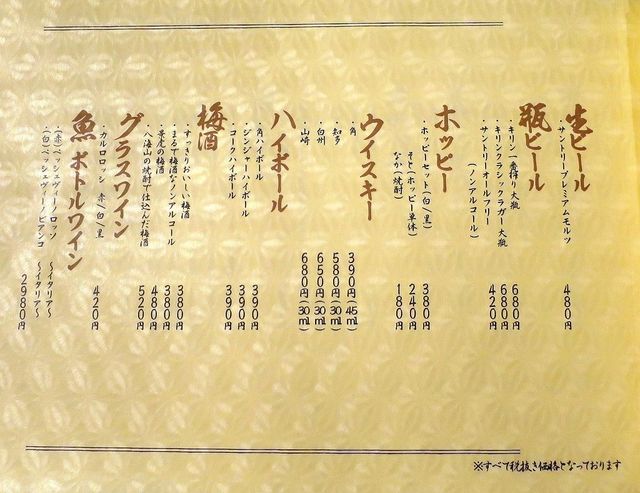 生ビール
・サントリープレミアムモルツ 480円
瓶ビール
・キリン一番搾り大瓶 680円
・キリンクラシックラガー大瓶 680円
・サントリーオールフリー 420円
(ノンアルコール)
ホッピー
・ホッピーセット(白/黒) 380円
そと(ホッピー単体) 240円
なか(焼酎) 180円
ウイスキー
・角 390円(45ml)
・知多 580円(30ml)
・白州 650円(30ml)
・山崎 680円(30ml)
ハイボール
・角ハイボール 390円
・ジンジャーハイボール 390円
・コークハイボール 390円
梅酒
・すっきりおいしい梅酒 380円
・まるで梅酒なノンアルコール 380円
・景虎の梅酒 480円
・八海山の焼酎で仕込んだ梅酒 520円
グラスワイン
・カルロロッシ 赤/白/黒 420円
魚ボトルワイン
・(赤)ペッシェヴィーノロッソ 〜イタリア〜
・(白)ペッシェヴィーノビアンコ 〜イタリア〜 2980円
※すべて税抜き価格となっております